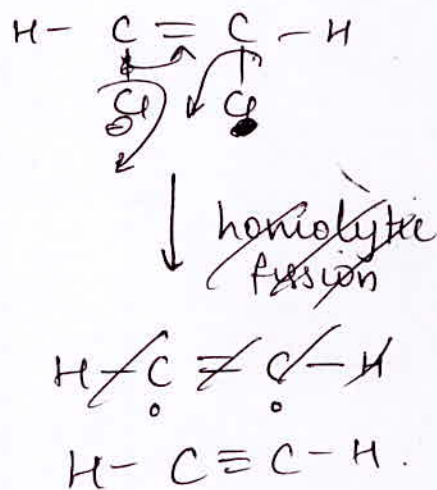 H - C = C - H
Cl Cl
⊖
homolytic
fission
H - C = C - H
H - C ≡ C - H.